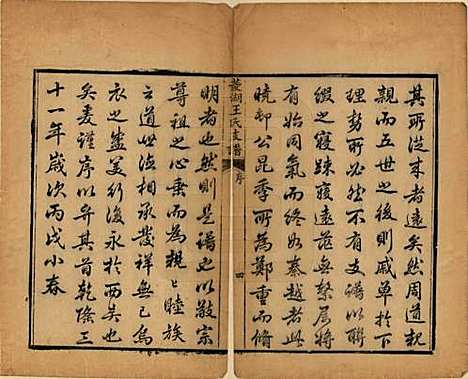 其所從來者遠矣然周道親
親而五世之後則戚單於下
理勢所必然不有支譜以聯
綴之寢疎寢遠茫無繫屬將
有始同氣而終如秦越者此
曉郵公昆季所為鄭重而脩
菱湖王氏支譜 序 四
明者也然則是譜也以敬宗
尊祖之心乗而為親親睦族
之道世德相承發祥無已烏
衣之盛美行復永於西矣也
矣爰謹序以弁其首乾隆三
十一年歲次丙戌小春